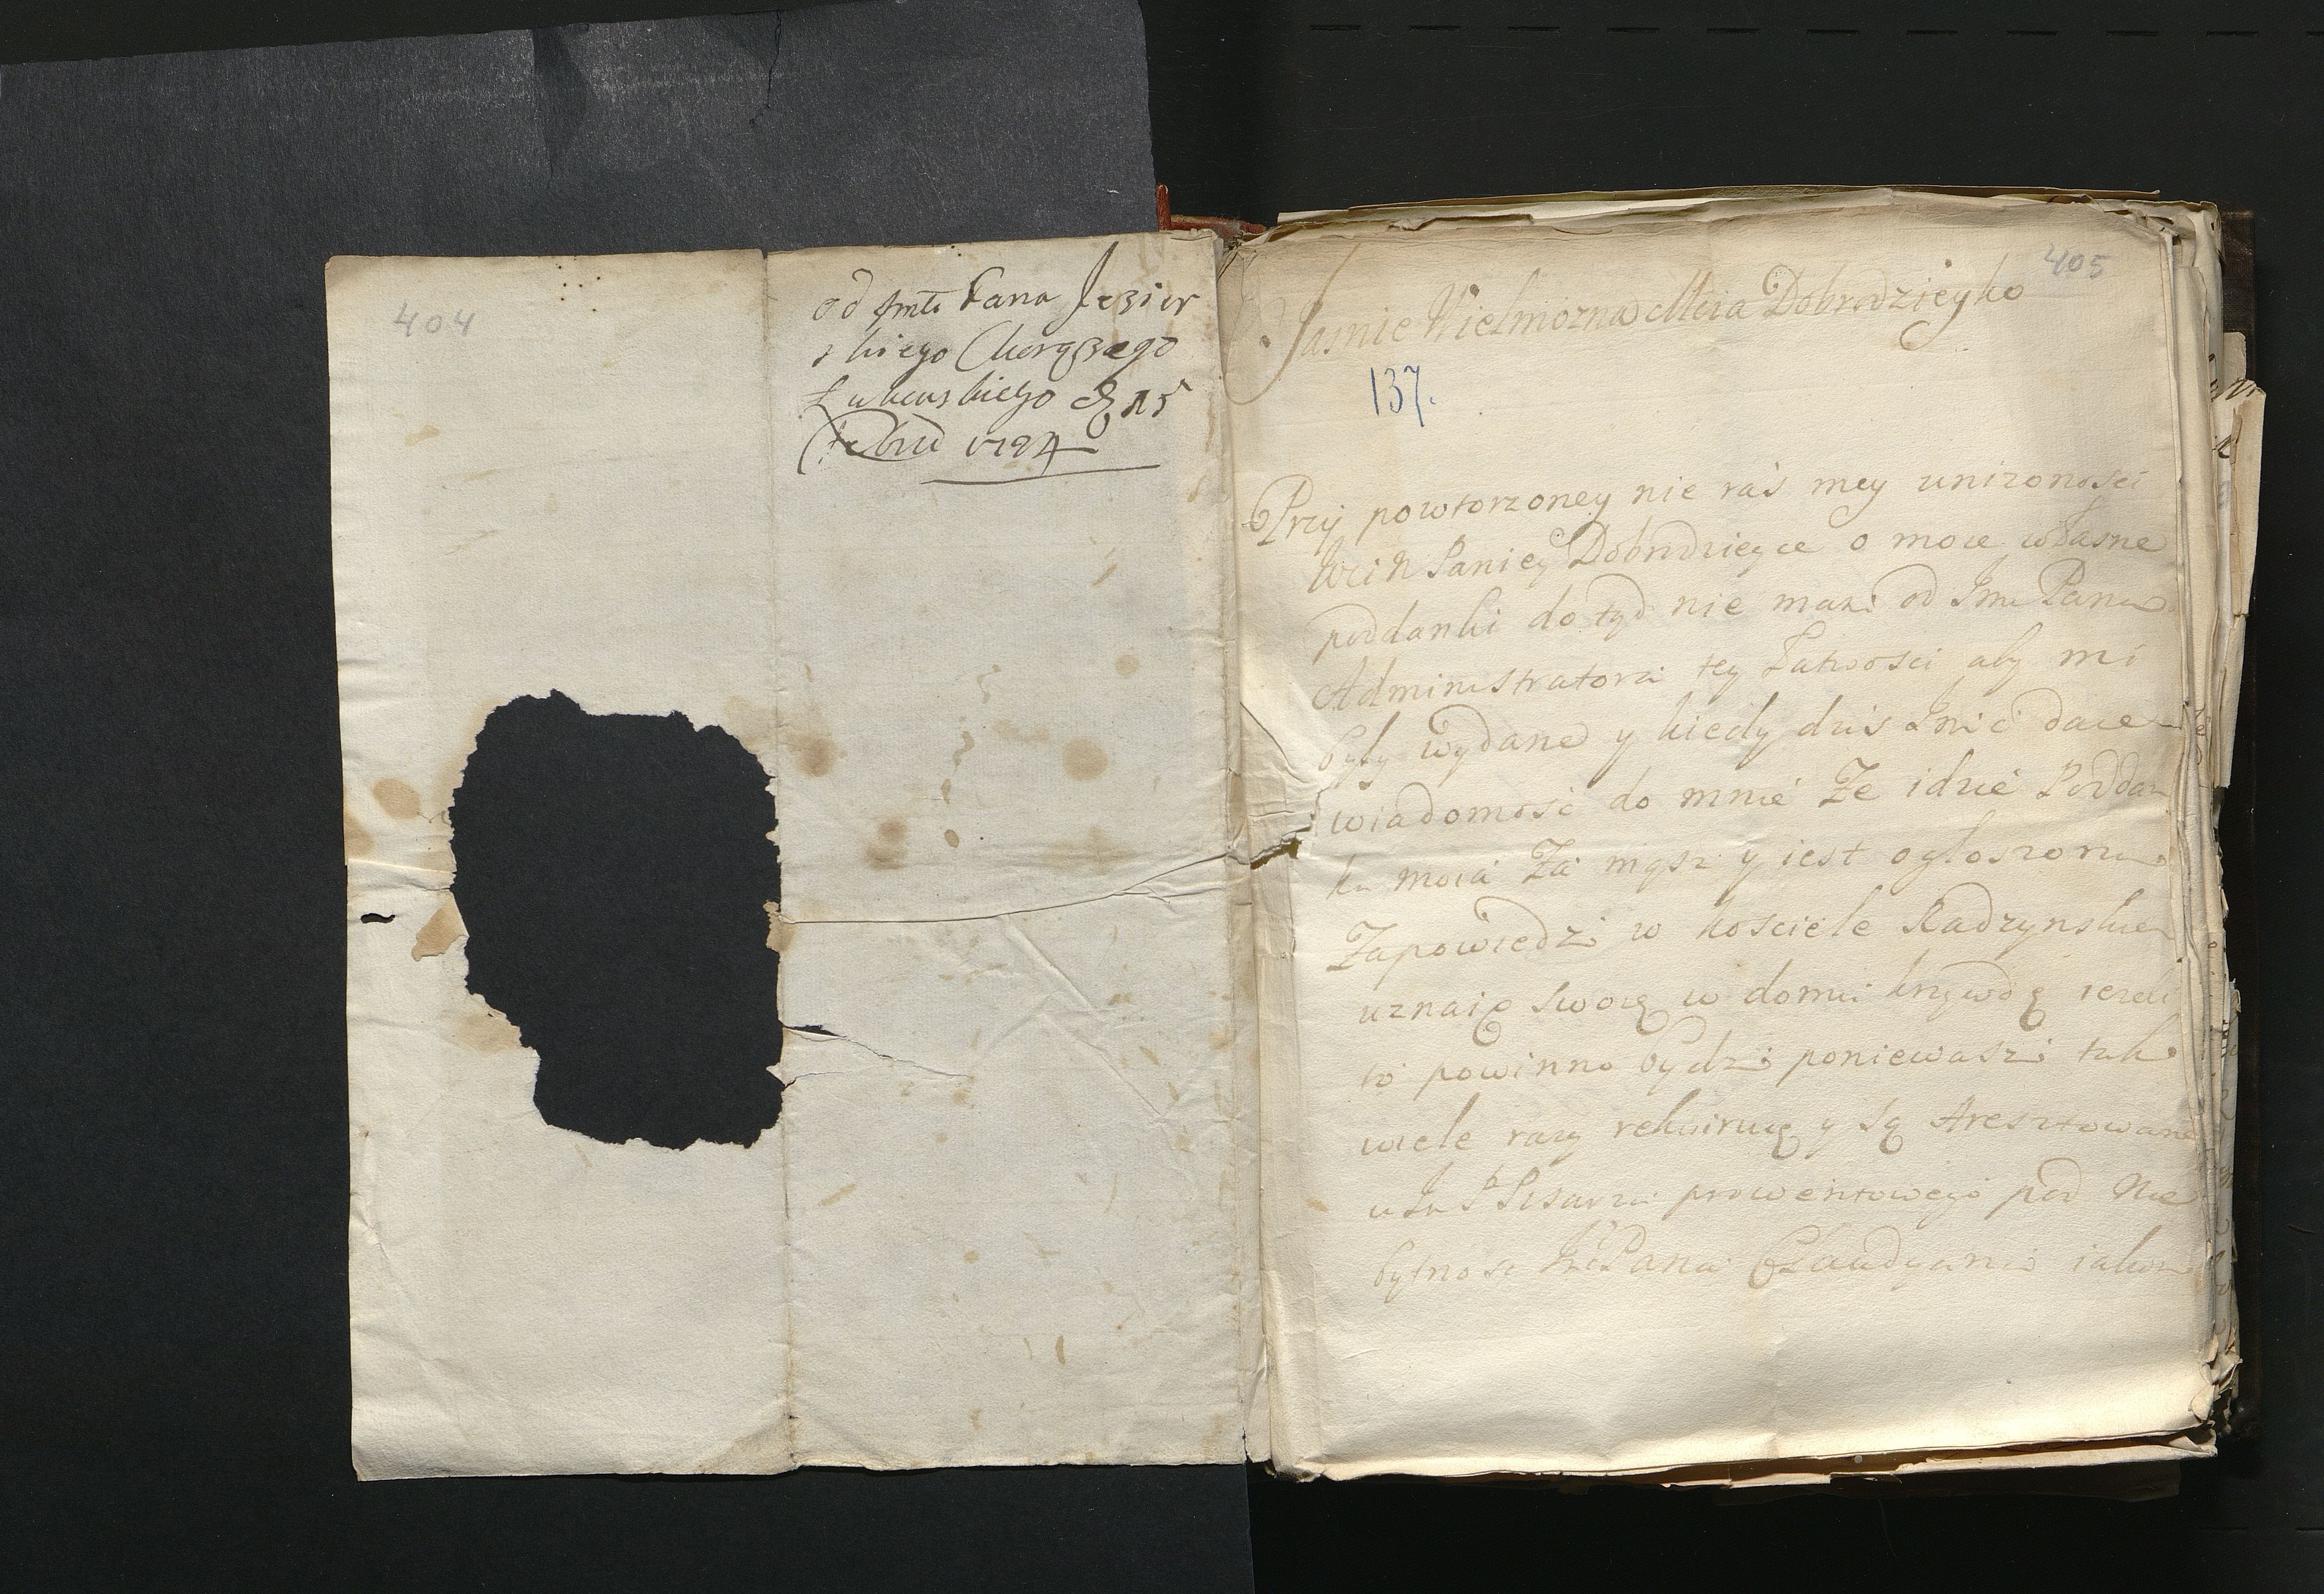 404
od Jmći Pana Jezier
skiego Chorążego
Łukowskiego d. 15
Febru 1724
405
Jasnie Wielmozna Mcia Dobrodzieyko
137.
Przy powtorzoney nie raś mey unizonosci
Paniey Dobrodzieyce o moie własne
poddanki do tyd nie mam od Jmci Pana
Administratora tey Łatwosci aby mi
były wydane y kiedy dzis daie
wiadomość do mnie Ze idzie Poddan
ka moia Za mąsz y iest ogłoszona
Zapowiedz w kosciele Radzynskiem
uznaię swoię w domu krzywdę iezeli
to powinno bydz poniewasz tak
wiele razy rekwiruię y są Aresztowane
u P Pisarza prowentowego pod Nie
bytnosc Pana iako